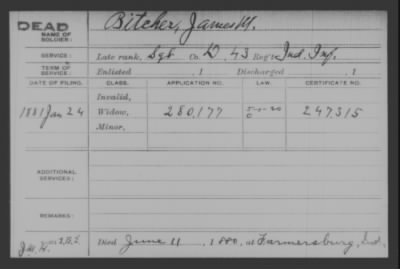 DEAD
NAME OF SOLDIER: Bitcher, James M.
SERVICE: Late rank, Sgt Co. D, 43 Reg't Ind. Inf.
TERM OF SERVICE: Enlisted , 1 Discharged , 1
DATE OF FILING. CLASS. APPLICATION NO. LAW. CERTIFICATE NO.
Invalid,
1881 Jan 24 Widow, 280,177 247,315
Minor,
ADDITIONAL SERVICES:
REMARKS:
Died June 11, 1880, at Farmersburg, Ind.